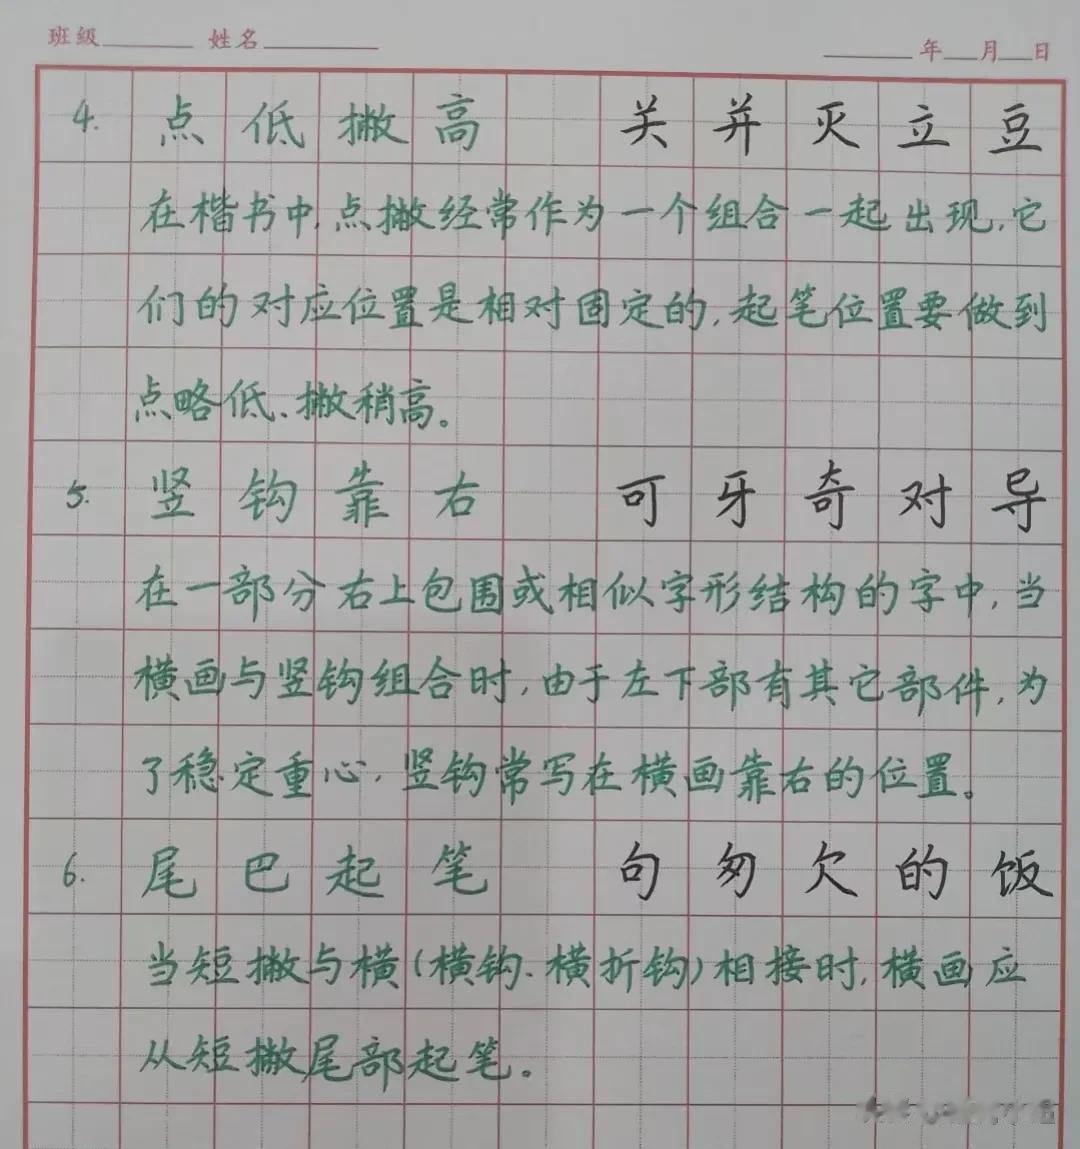 班级 姓名 年 月 日
4. 点低撇高 关并灭立豆
在楷书中,点撇经常作为一个组合一起出现,它
们的对应位置是相对固定的,起笔位置要做到
点略低、撇稍高。
5. 竖钩靠右 可牙奇对导
在一部分右上包围或相似字形结构的字中,当
横画与竖钩组合时,由于左下部有其它部件,为
了稳定重心,竖钩常写在横画靠右的位置。
6. 尾巴起笔 句匆欠的饭
当短撇与横(横钩、横折钩)相接时,横画应
从短撇尾部起笔。